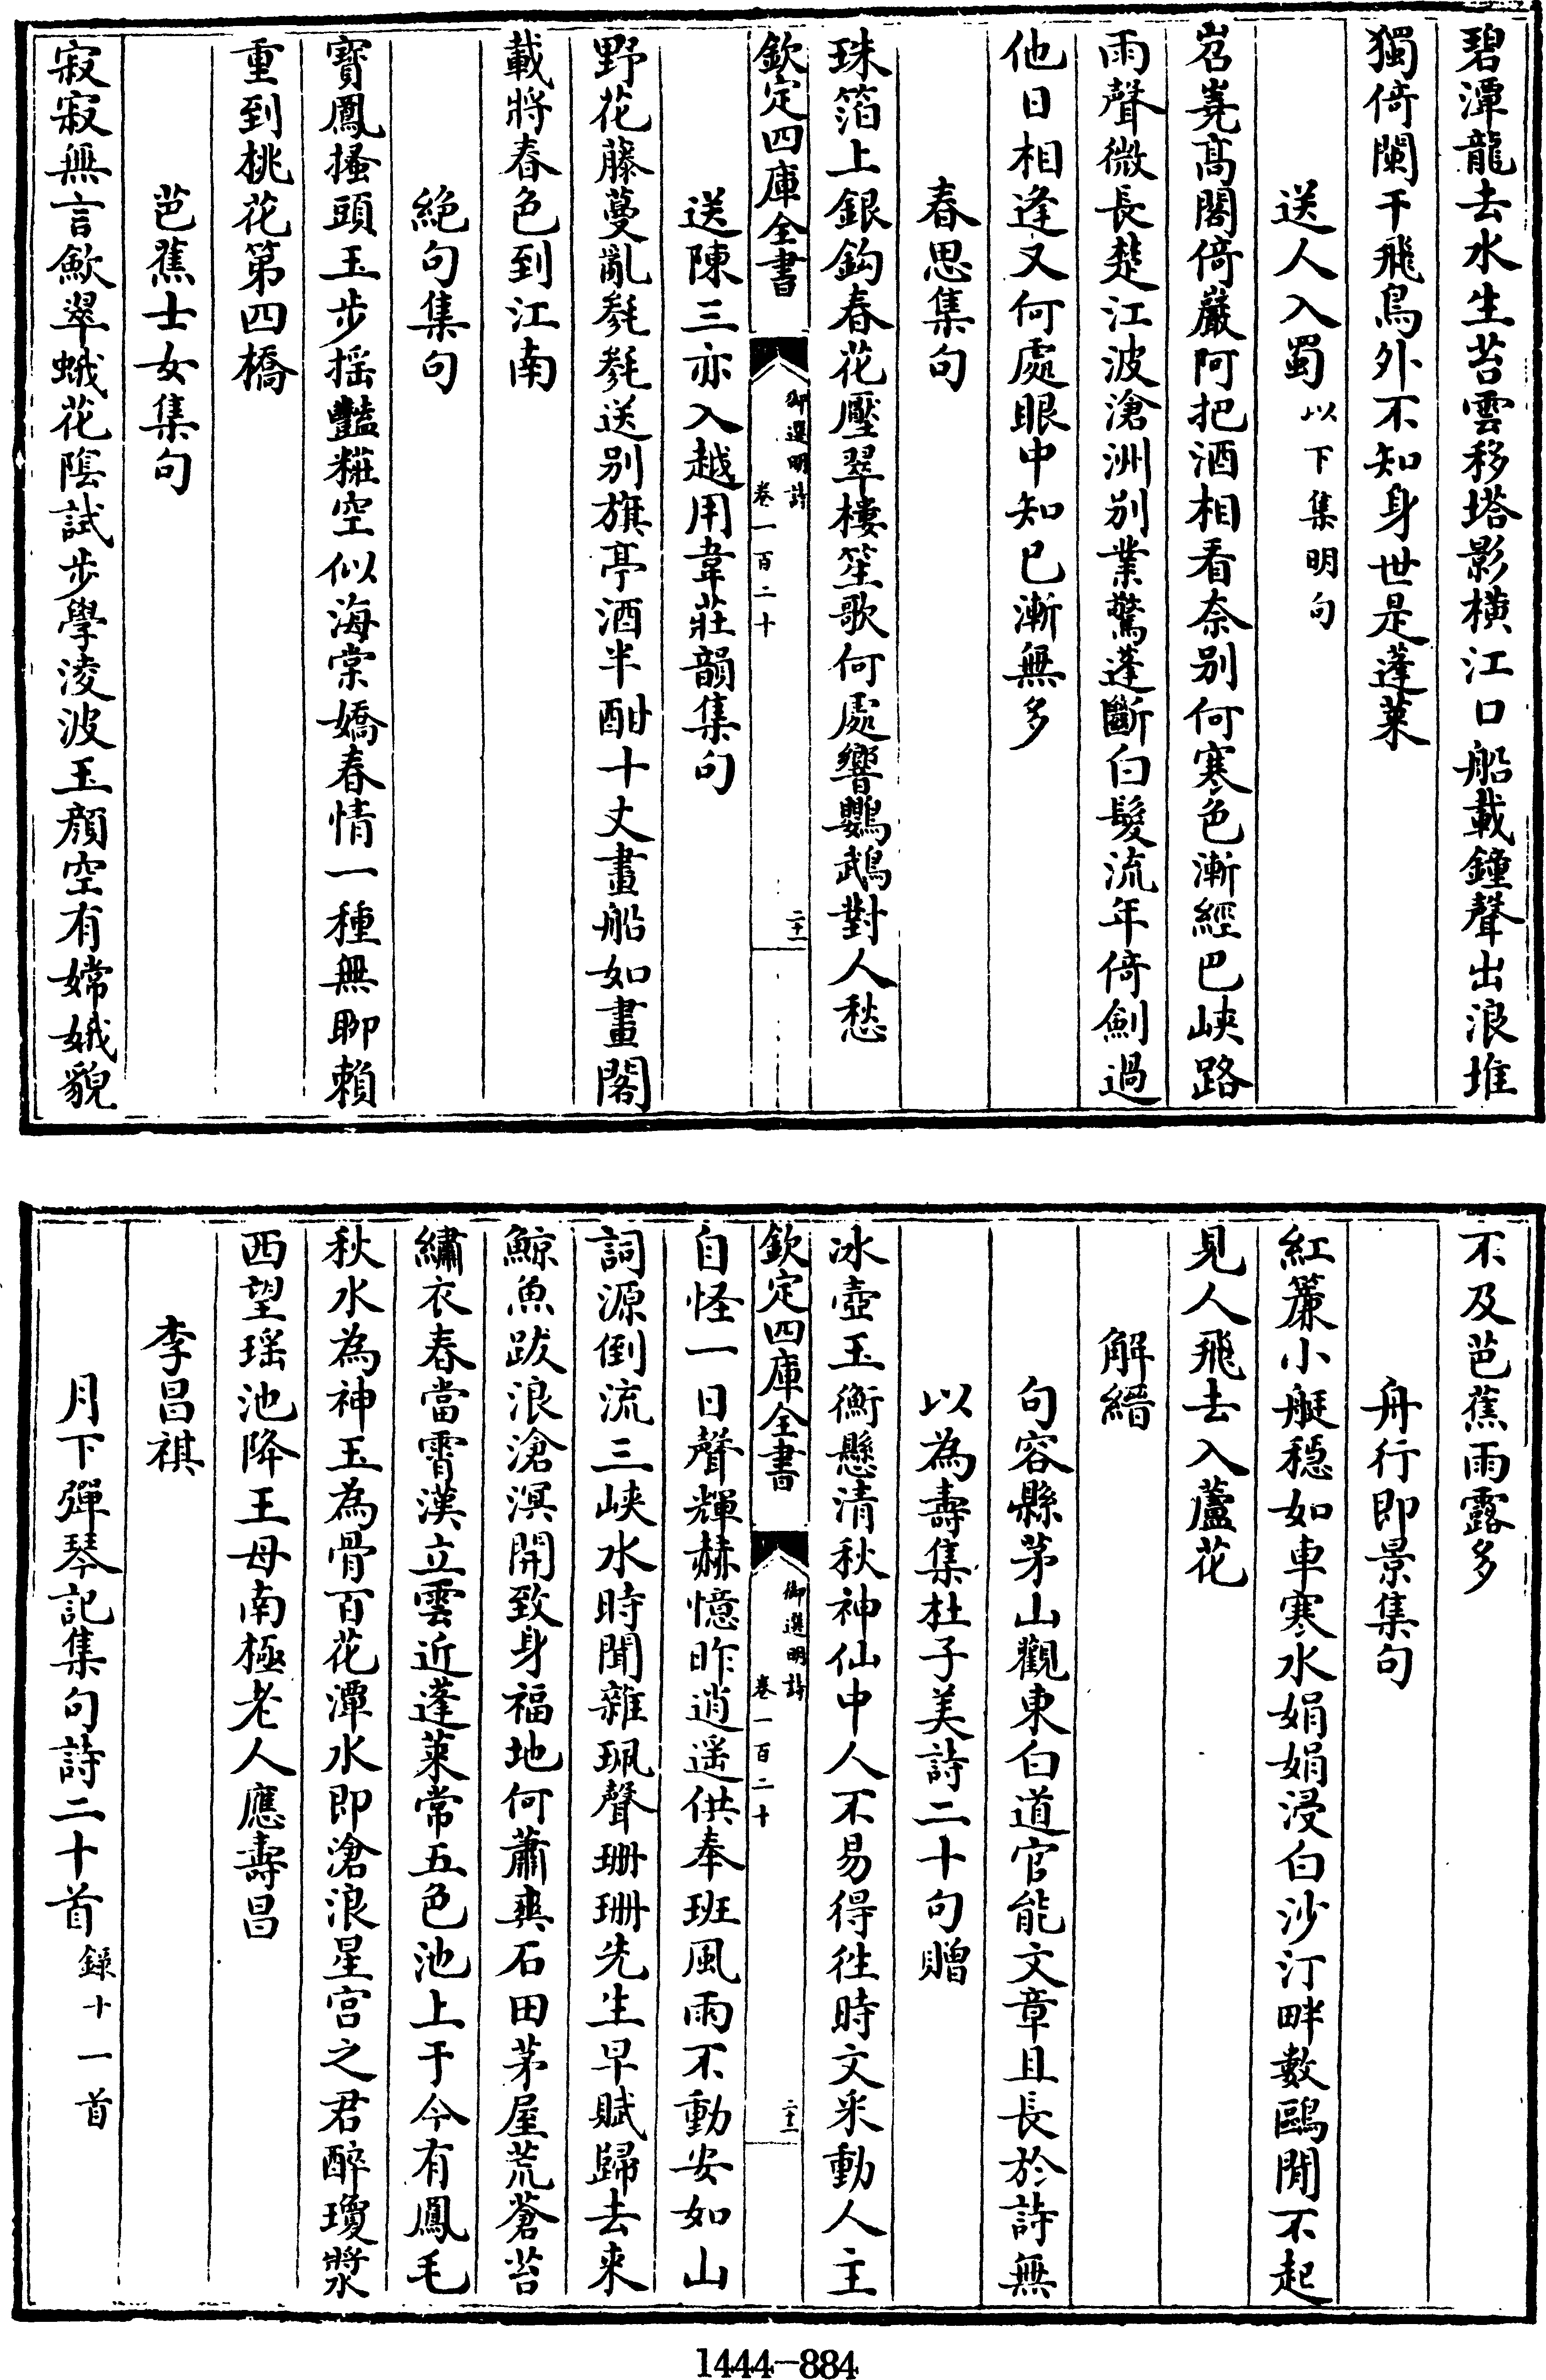 碧潭龍去水生苔雲移塔影横江口船載鐘聲出浪堆
獨倚闌干飛鳥外不知身世是蓬萊
送人入蜀以下集明句
岧嶤髙閣倚巖阿把酒相看奈别何寒色漸經巴峽路
雨聲微長楚江波滄洲别業驚蓬斷白髮流年倚劍過
他日相逢又何處眼中知已漸無多
春思集句
珠箔上銀鈎春花壓翠樓笙歌何處響鸚鵡對人愁
欽定四庫全書
御選明詩
卷一百二十
二十一
送陳三亦入越用韋莊韻集句
野花藤蔓亂毿毿送别旗亭酒半酣十丈畫船如畫閣
載將春色到江南
絶句集句
寳鳳搔頭玉步揺豔糚空似海棠嬌春情一種無聊賴
重到桃花第四橋
芭蕉士女集句
寂寂無言歛翠蛾花隂試步學淩波玉顔空有嫦娥貌
不及芭蕉雨露多
舟行即景集句
紅簾小艇穏如車寒水娟娟浸白沙汀畔數鷗閒不起
見人飛去入蘆花
解縉
句容縣茅山觀東白道官能文章且長於詩無
以為壽集杜子美詩二十句贈
冰壺玉衡懸清秋神仙中人不易得徃時文采動人主
欽定四庫全書
御選明詩
卷一百二十
二十二
自怪一日聲輝赫憶昨逍遥供奉班風雨不動安如山
詞源倒流三峽水時聞雜珮聲珊珊先生早賦歸去来
鯨魚跋浪滄溟開致身福地何蕭爽石田茅屋荒蒼苔
繡衣春當霄漢立雲近蓬萊常五色池上于今有鳳毛
秋水為神玉為骨百花潭水即滄浪星宫之君醉瓊漿
西望瑶池降王母南極老人應壽昌
李昌祺
月下彈琴記集句詩二十首録十一首
1444-884